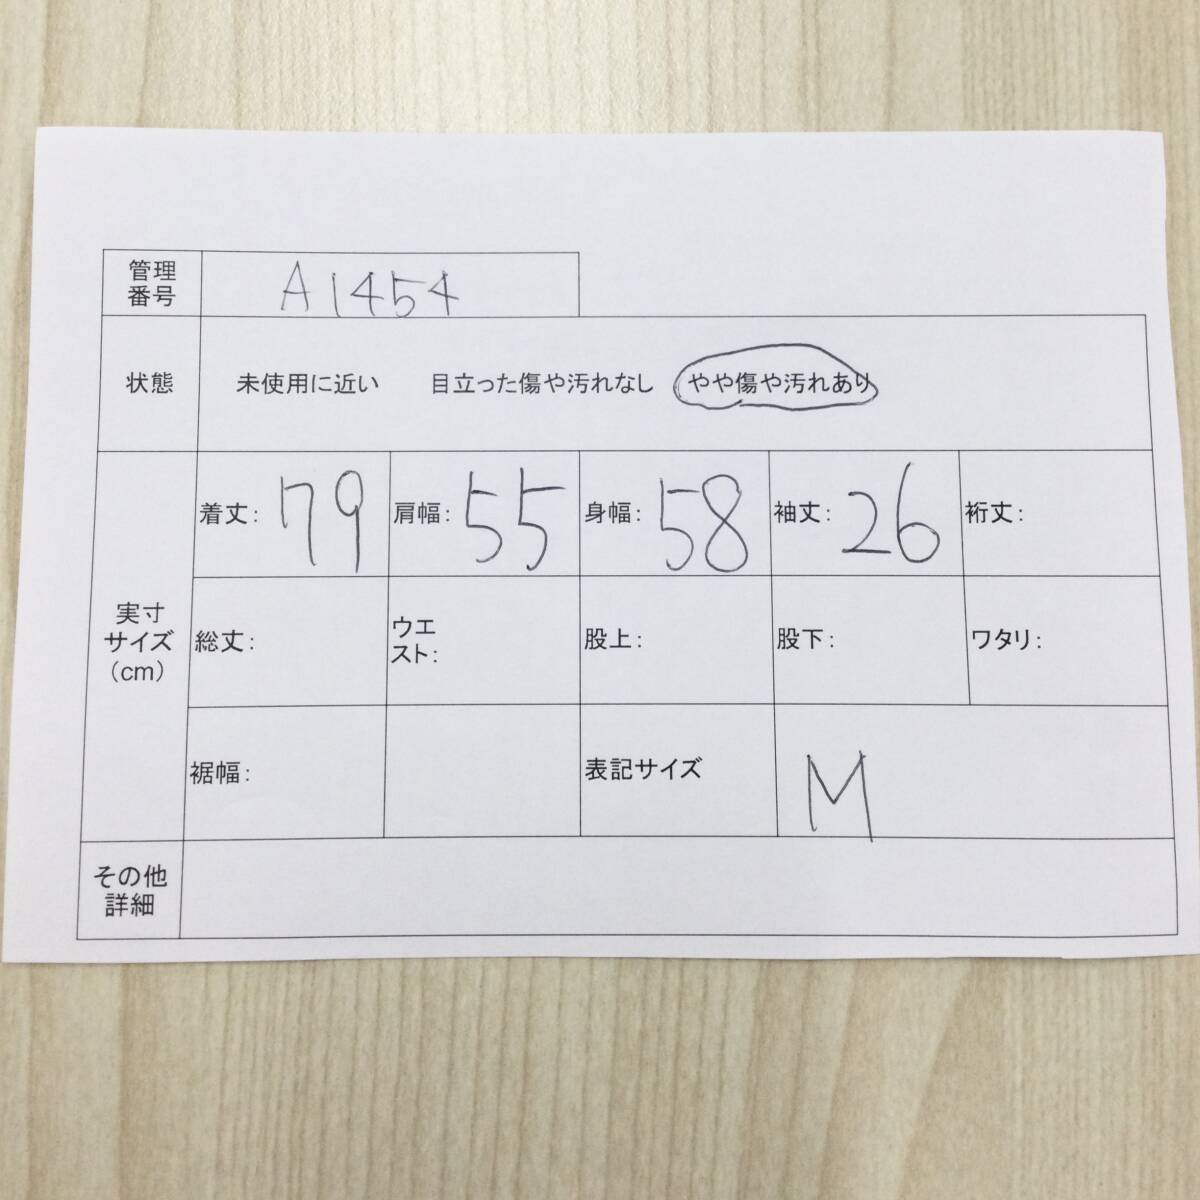 管理
番号
A1454
状態
未使用に近い 目立った傷や汚れなし やや傷や汚れあり
実寸
サイズ
(cm)
着丈: 79
肩幅: 55
身幅: 58
袖丈: 26
裄丈:
総丈:
ウエ
スト:
股上:
股下:
ワタリ:
裾幅:
表記サイズ
M
その他
詳細